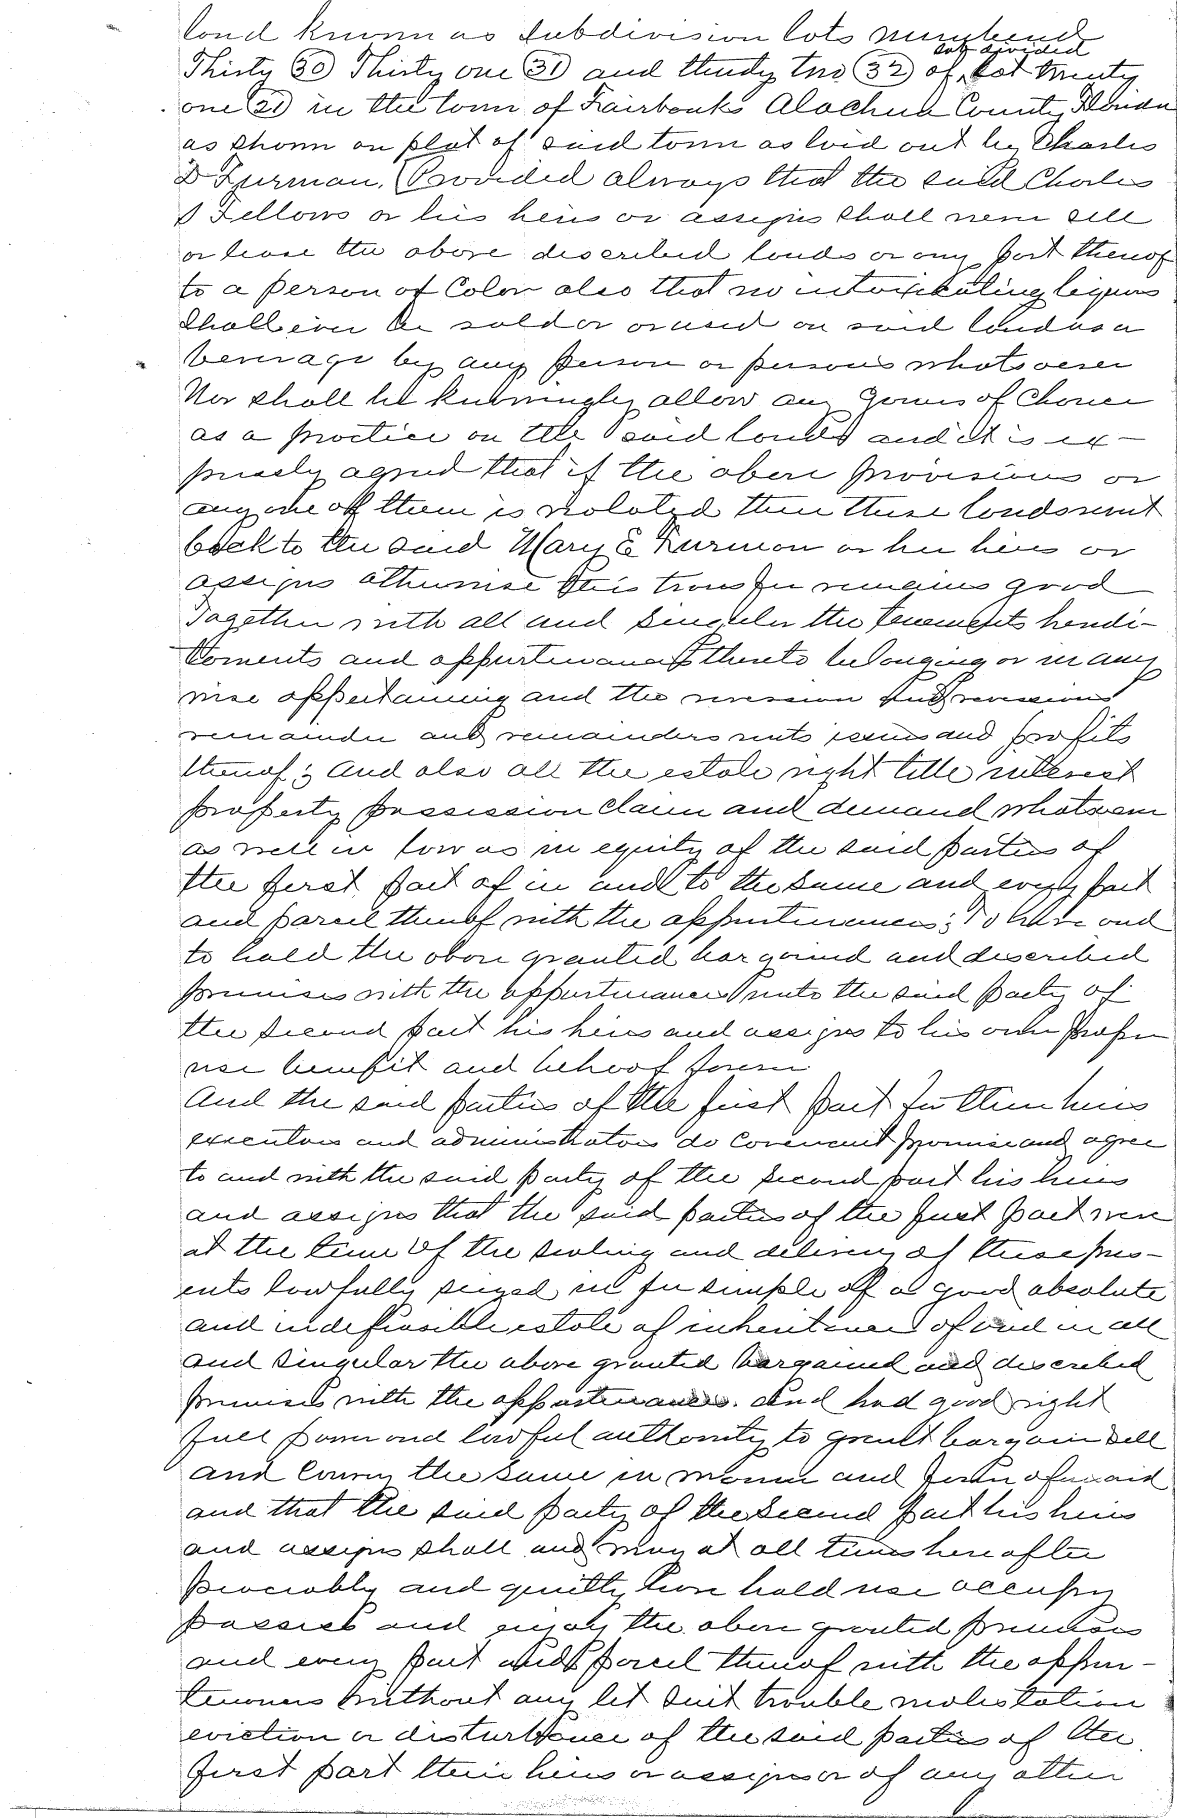 land known as subdivision lots numbered
Thirty (30) Thirty one (31) and thirty two (32) of sub divided lot twenty
one (21) in the town of Fairbanks Alachua County, Florida
as shown on plat of said town as laid out by Charles
D Furman. (Provided always that the said Charles
S Fellows or his heirs or assigns shall never sell
or lease the above described lands or any part thereof
to a person of Color also that no intoxicating liquors
shall ever be sold or or used on said land as a
beverage by any person or persons whatsoever
Nor shall he knowingly allow any games of Chance
as a practice on the said lands and it is ex-
pressly agreed that if the above provisions or
any one of them is violated then these lands revert
back to the said Mary E Furman or her heirs or
assigns otherwise this transfer remains good
Together with all and singular the tenements heredi-
taments and appurtenances thereto belonging or in any
wise appertaining and the reversion and reversions
remainder and remainders rents issues and profits
thereof; and also all the estate right title interest
property possession claim and demand whatsoever
as well in law as in equity of the said parties of
the first part of in and to the same and every part
and parcel thereof with the appurtenances; To have and
to hold the above granted bargained and described
premises with the appurtenances unto the said party of
the second part his heirs and assigns to his own proper
use benefit and behoof forever
And the said parties of the first part for them heirs
executors and administrators do covenant promise and agree
to and with the said party of the second part his heirs
and assigns that the said parties of the first part were
at the time of the sealing and delivery of these pres-
ents lawfully seized in fee simple of a good absolute
and indefeasible estate of inheritance of and in all
and singular the above granted bargained and described
premises with the appurtenances. And had good right
full power and lawful authority to grant bargain sell
and convey the same in manner and form aforesaid
and that the said party of the second part his heirs
and assigns shall and may at all times hereafter
peaceably and quietly have hold use occupy
possess and enjoy the above granted premises
and every part and parcel thereof with the appur-
tenances without any let suit trouble molestation
eviction or disturbance of the said parties of the
first part their heirs or assigns or of any other